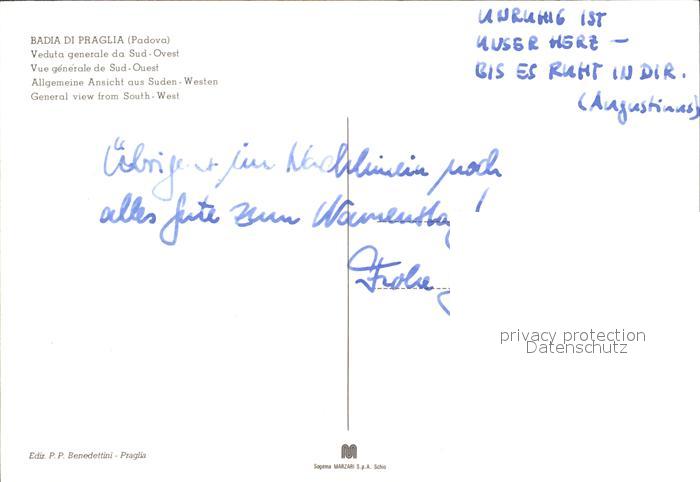 BADIA DI PRAGLIA (Padova)
Veduta generale da Sud-Ovest
Vue générale de Sud-Ouest
Allgemeine Ansicht aus Suden-Westen
General view from South-West
UNRUHIG IST
UNSER HERZ —
BIS ES RUHT IN DIR.
(Augustinus)
Übrigens im Nachhinein noch
alles Gute zum Namenstag!
privacy protection
Datenschutz
Ediz. P. P. Benedettini - Praglia
Sagema MARZARI S.p.A. Schio